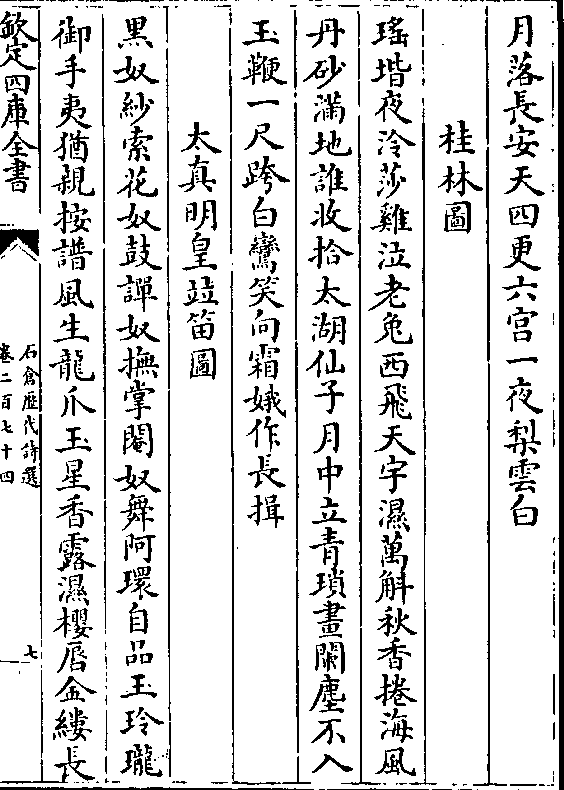 月落長安天四更六宫一夜梨雲白
桂林圖
瑤堦夜泠莎雞泣老兔西飛天宇濕萬斛秋香捲海風
丹砂滿地誰收拾太湖仙子月中立青瑣畫闌塵不入
玉鞭一尺跨白鸞笑向霜娥作長揖
太真明皇竝笛圖
黒奴紗索花奴鼓譂奴撫掌閹奴舞阿環自品玉玲瓏
御手夷猶親按譜風生龍爪玉星香露濕櫻唇金縷長
欽定四庫全書
石倉歴代詩選
卷二百七十四
七